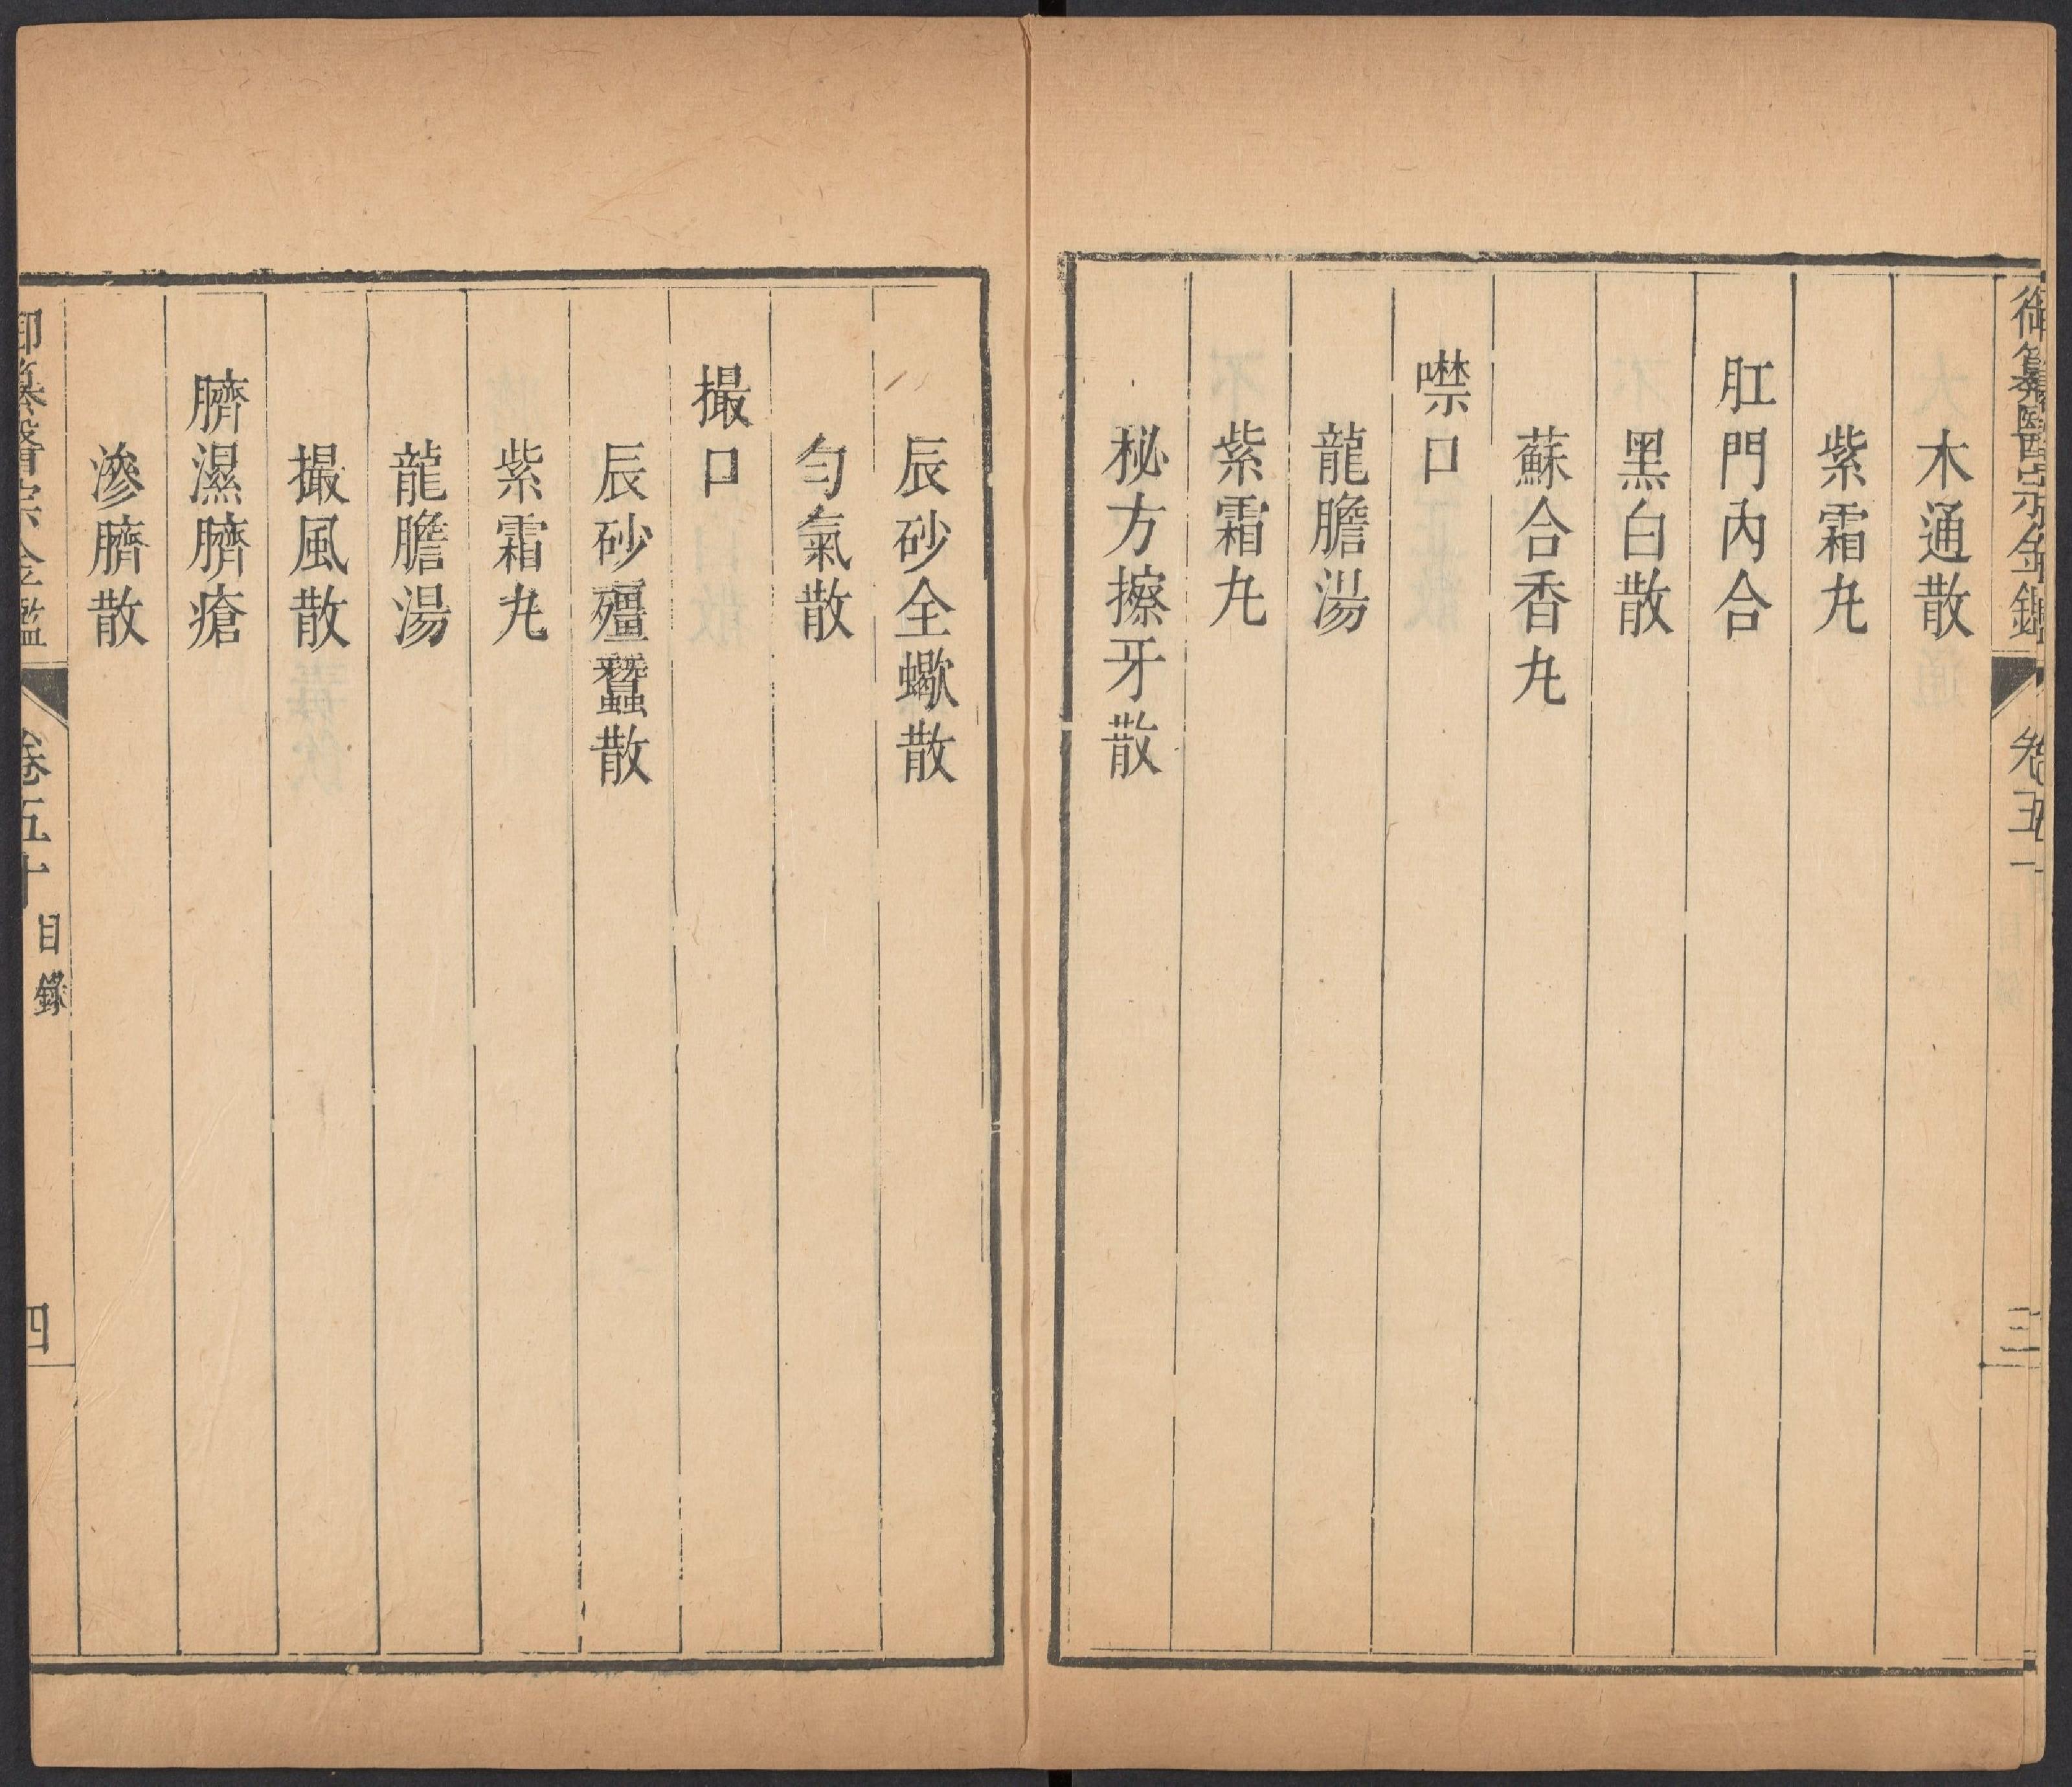 御纂醫宗金鑑 卷五十 三
木通散
紫霜丸
肛門內合
黑白散
蘇合香丸
噤口
龍膽湯
紫霜丸
秘方擦牙散
辰砂全蠍散
勻氣散
撮口
辰砂殭蠶散
紫霜丸
龍膽湯
撮風散
臍濕臍瘡
滲臍散
御纂醫宗金鑑 卷五十 目錄 四